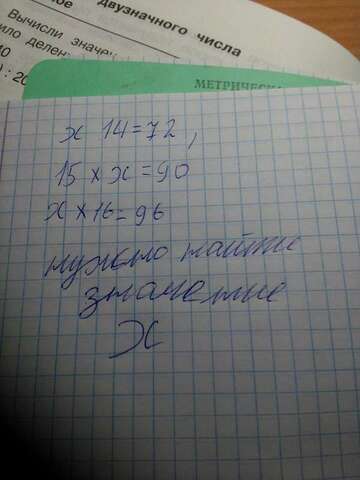 двузначного числа
Вычисли значен
ило делен
) : 20
МЕТРИЧЕСКА
х 14=72,
15 × х =90
х × 16=96
нужно найти
значение
Х